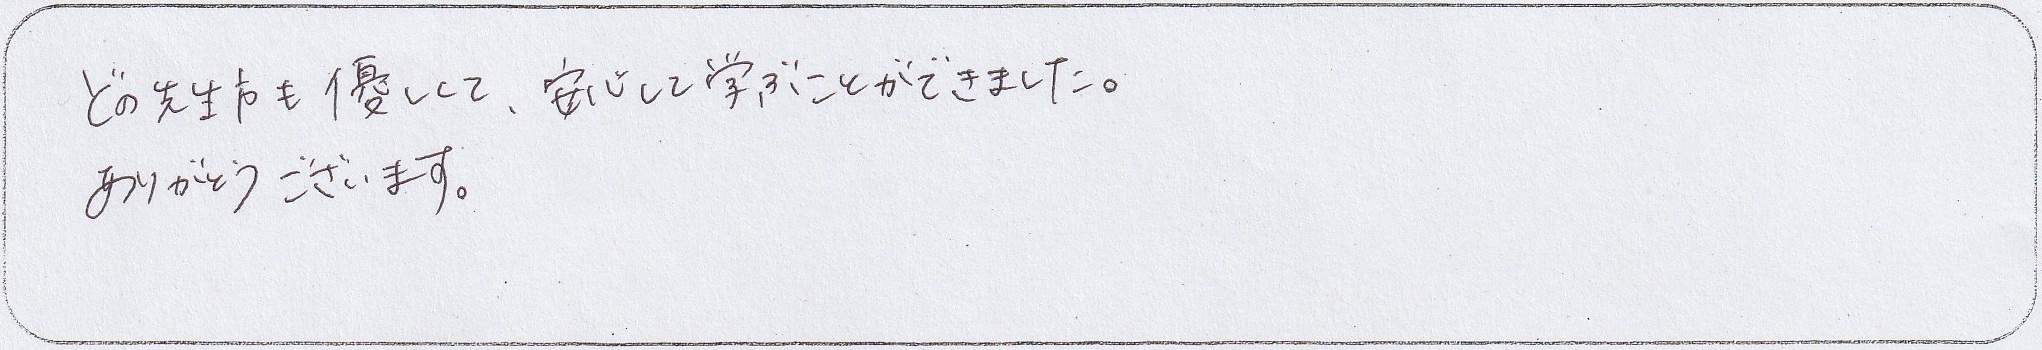 どの先生方も優しくて、安心して学ぶことができました。
ありがとうございます。